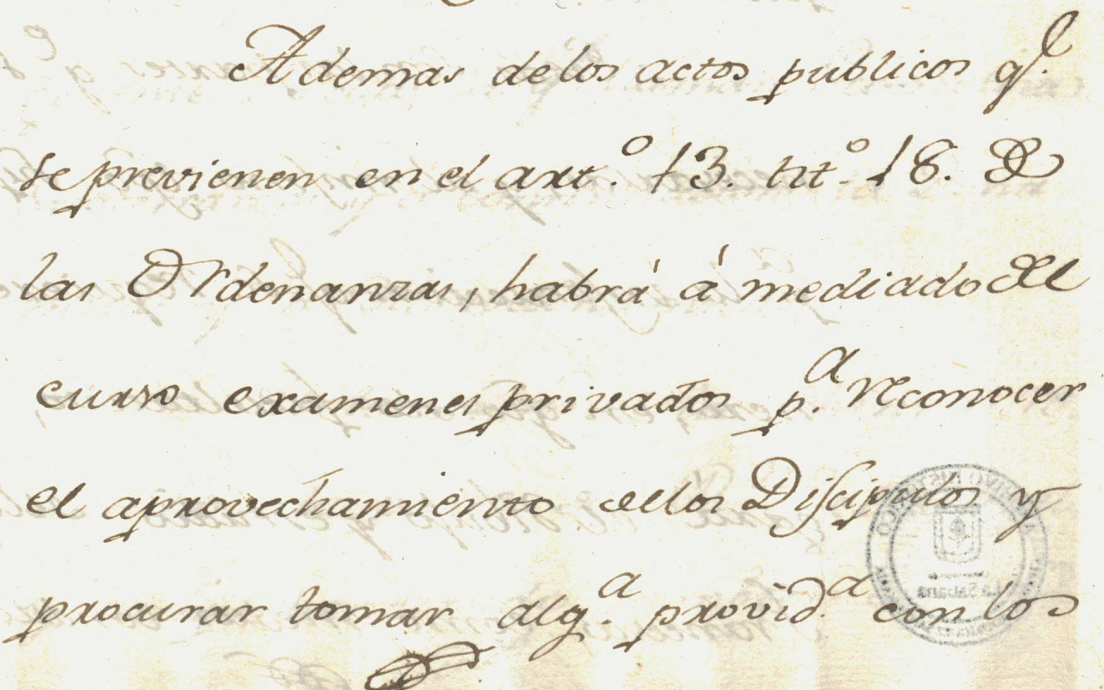 Ademas de los actos publicos q.e
se previenen en el art.o 13. tit.o 18. de
las Ordenanzas, habrá á mediado del
curso examenes privados p.a reconocer
el aprovechamiento de los Discipulos y
procurar tomar alg.a provid.a con los